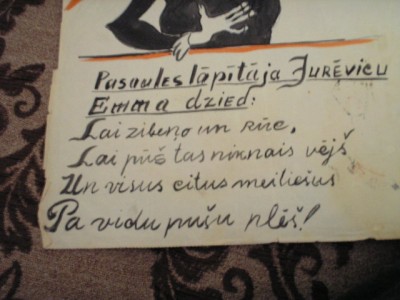 Pasaules lāpītāja Jurēvicu
Emma dzied:
Lai zibeņo un rūc,
Lai pūš tas niknais vējš
Un visus citus meiliešus
Pa vidu pušu plēš!